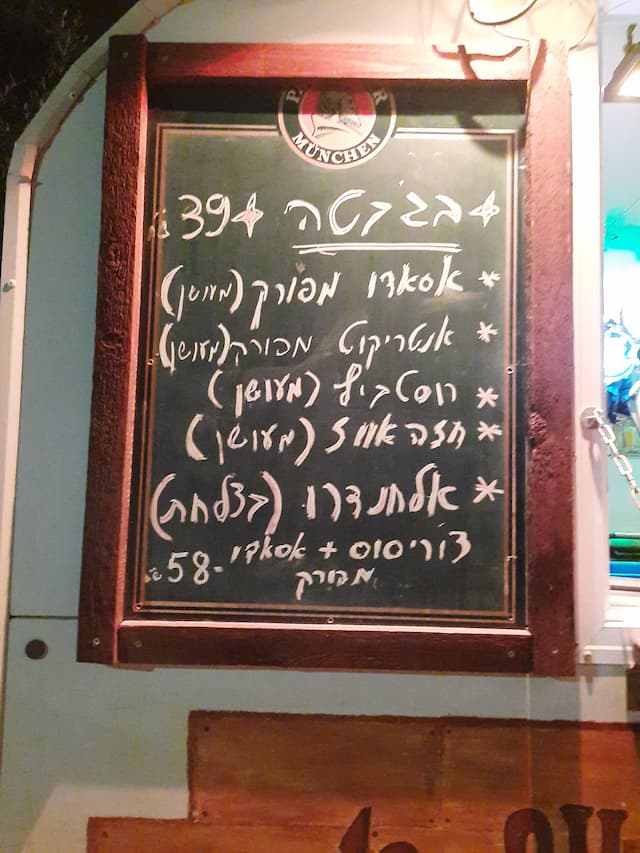 P R
MÜNCHEN
בג'בטה 39 ₪
* אסאדו מפורק (מעושן)
* אנטריקוט מפורק (מעושן)
* רוסטביף (מעושן)
* חזה אווז (מעושן)
* אלחנדרו (בצלחת)
צ'וריסוס + אסאדו 58- ₪
מפורק